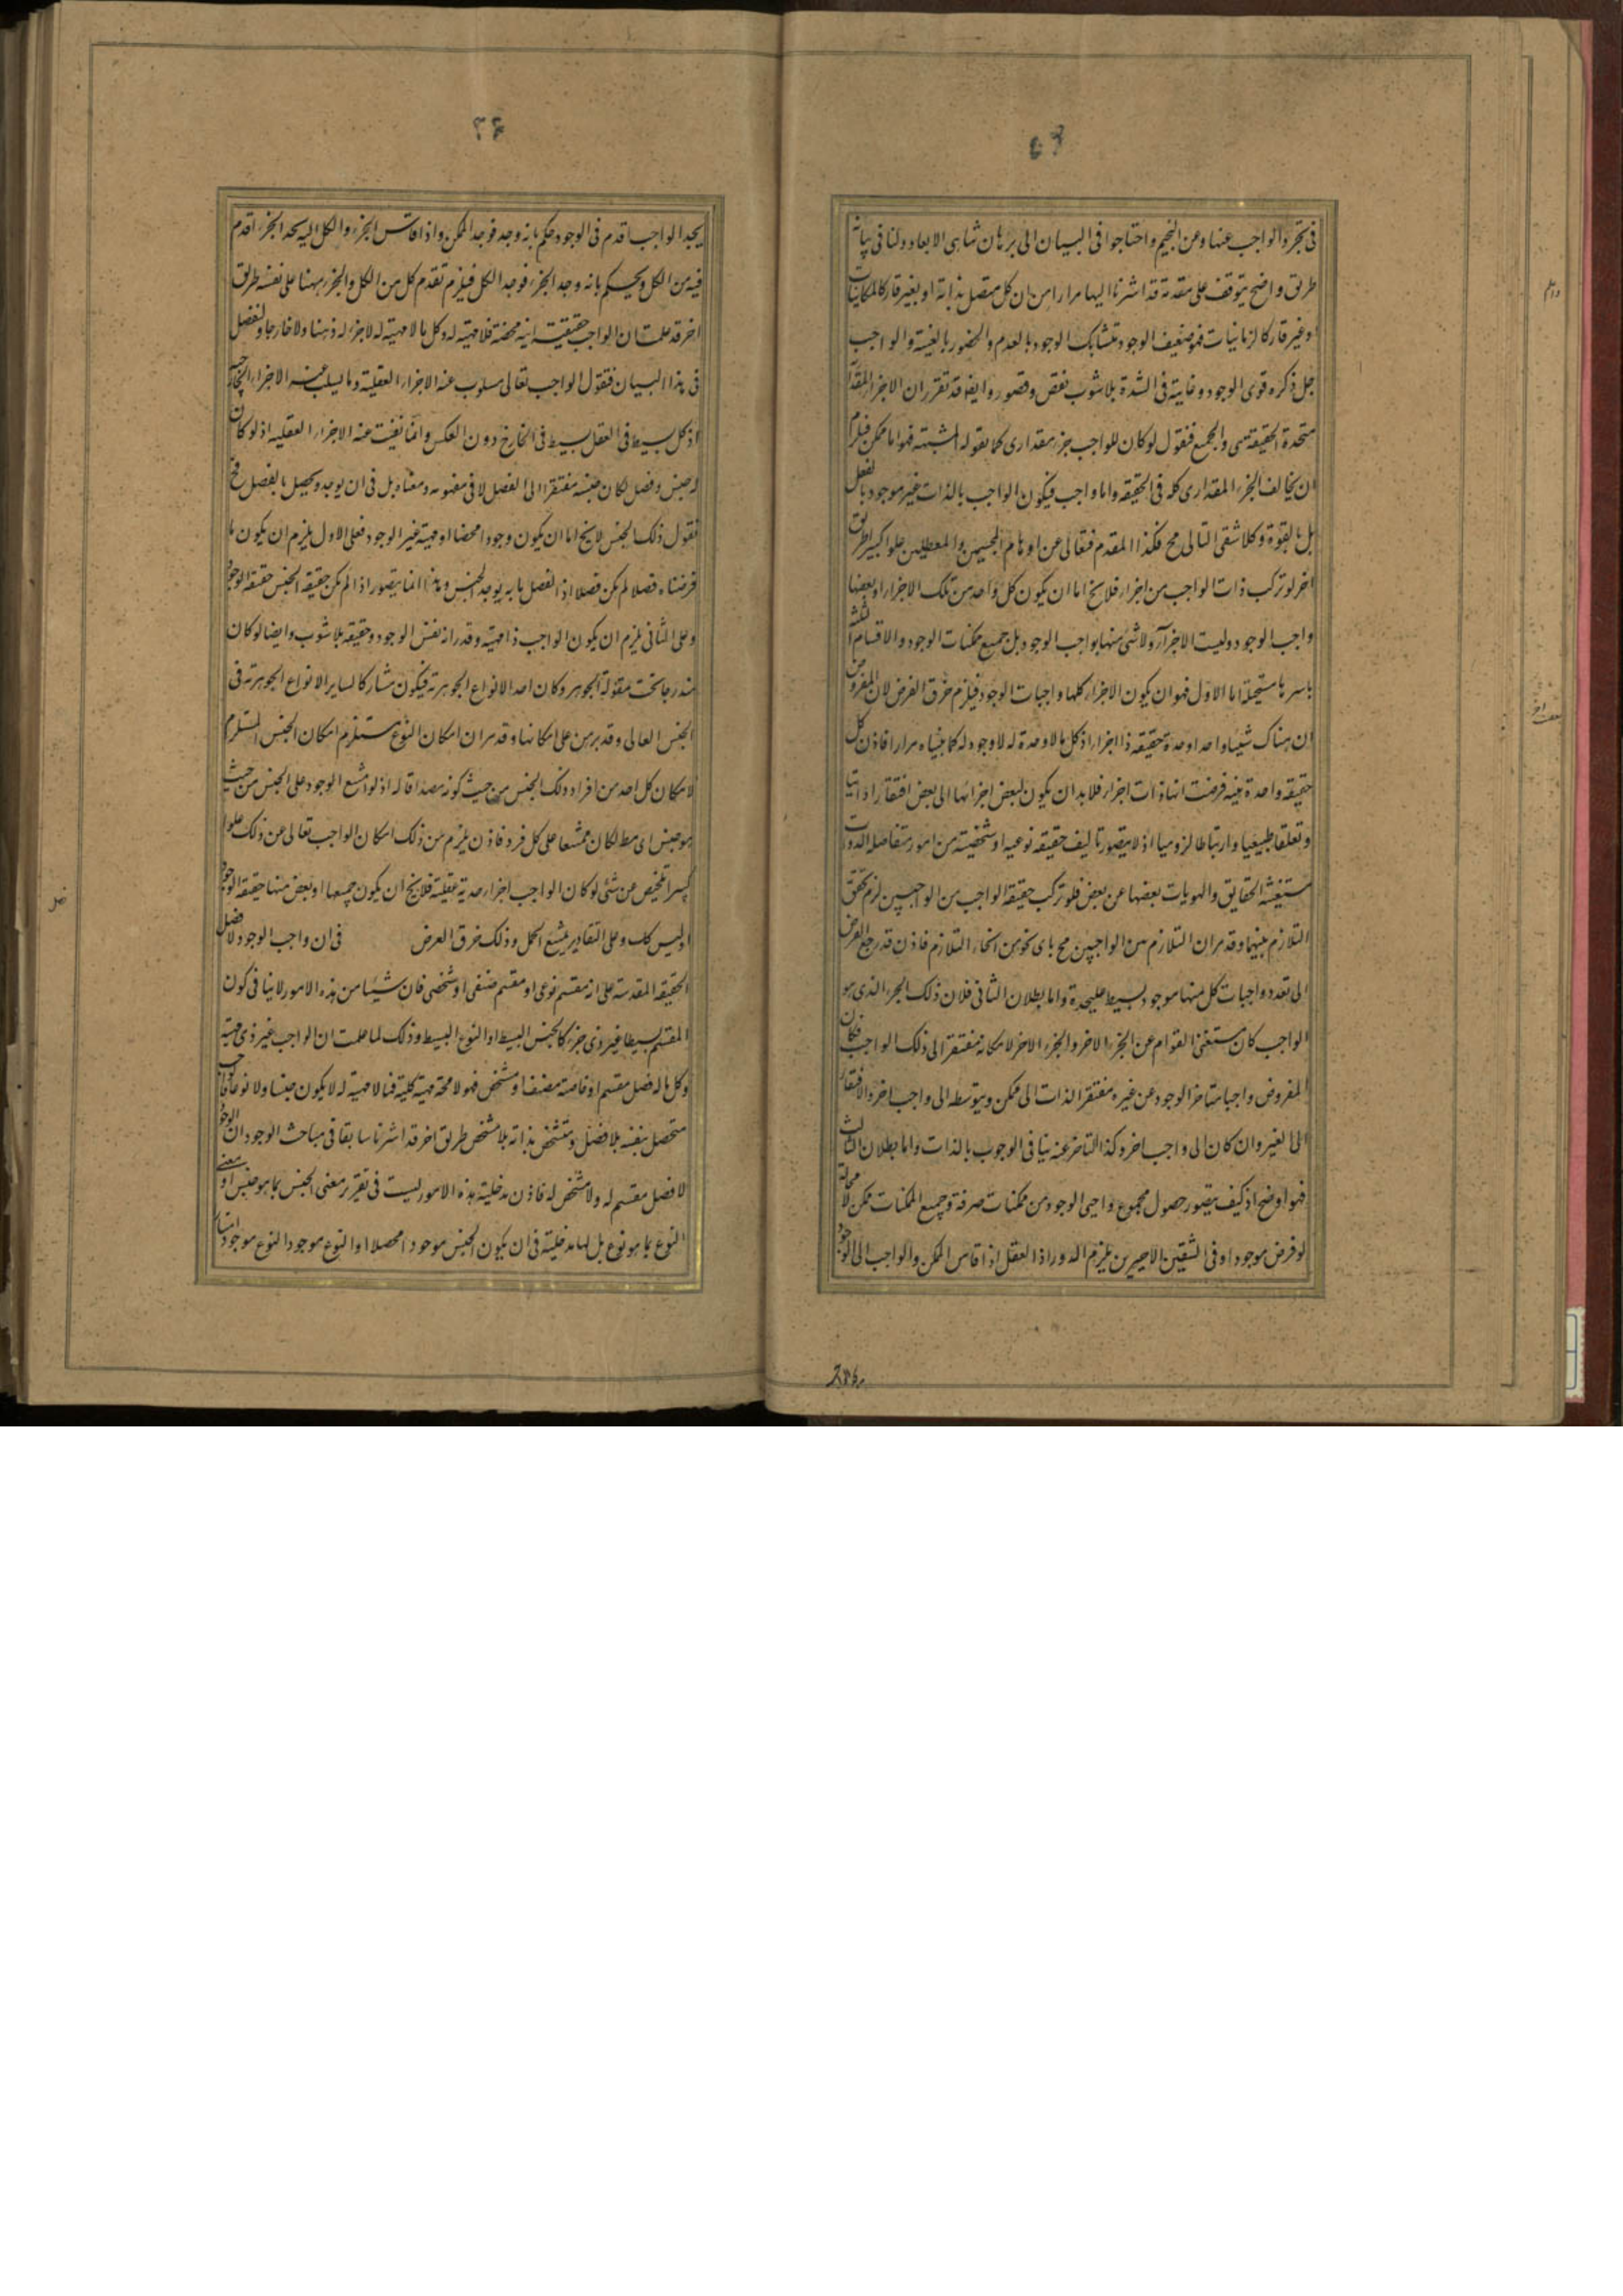 ٤٥
فى تجرد الواجب عنها وعن التجسم واحتاجوا فى البيان الى برهان تناهى الابعاد ولنا فى بيانه
طريق واضح يتوقف على مقدمة قد اشرنا اليها مرارا من ان كل متصل بذاته او بغيره قار كالمكانيات
او غير قار كالزمانيات فهو ضعيف الوجود متشابك الوجود بالعدم والحضور بالغيبة والواجب
جل ذكره قوى الوجود وغايته فى الشدة بلا شوب نقص وقصور وايضا قد تقرر ان الاجزاء المقدارية
متحدة الحقيقة هى والجميع فنقول لو كان للواجب جزء مقدارى كما يقوله المشبهة فهو اما ممكن فيلزم
ان يخالف الجزء المقدارى كله فى الحقيقة واما واجب فيكون الواجب بالذات غير موجود بالفعل
بل بالقوة وكلا شقى التالى مح فكذا المقدم فتعالى عن اوهام المجسمين والمعطلين علوا كبيرا طريق
اخر لو تركب ذات الواجب من اجزاء فلا يخ اما ان يكون كل واحد من تلك الاجزاء او بعضها
واجب الوجود وليست الاجزاء ولا شئ منها بواجب الوجود بل جميع ممكنات الوجود والاقسام الثلثة
باسرها مستحيلة اما الاول فهو ان يكون الاجزاء كلها واجبات الوجود فيلزم خرق الفرض لان المفروض
ان هناك شيئا واحدا وحدة حقيقة ذا اجزاء اذ كل ما لا وحدة له لا وجود له كما بيناه مرارا فاذن كل
حقيقة واحدة فرضت انها ذات اجزاء فلا بد ان يكون لبعض اجزائها الى بعض افتقارا ذاتيا
وتعلقا طبيعيا وارتباطا لزوميا اذ لا يتصور تاليف حقيقة نوعية او شخصية من امور متفاصلة الذوات
مستغنية الحقايق والهويات بعضها عن بعض فلو تركب حقيقة الواجب من الواجبين لزم تحقق
التلازم بينهما وقد مر ان التلازم من الواجبين مح باى نحو من انحاء التلازم فاذن قد رجع الفرض
الى تعدد واجبات كل منها موجود بسيط عليحدة واما بطلان الثانى فلان ذلك الجزء الذى هو
الواجب كان مستغنى القوام عن الجزء الاخر والجزء الاخر لامكانه مفتقر الى ذلك الواجب فكان
المفروض واجبا متاخر الوجود عن غيره مفتقر الذات الى ممكن وبتوسطه الى واجب اخر والافتقار
الى الغير وان كان الى واجب اخر وكذا التاخر عنه ينافى الوجوب بالذات واما بطلان الثالث
فهو اوضح اذ كيف يتصور حصول مجموع واجبى الوجود من ممكنات صرفة وجميع الممكنات ممكن لا محالة
لو فرض موجودا وفى الشقين الاخيرين يلزم الدور اذ العقل اذا قاس الممكن والواجب الى الوجود
٤٦
يجد الواجب اقدم فى الوجود حكم بانه وجد فوجد الممكن واذا قاس الجزء والكل اليه يجد الجزء اقدم
فيه من الكل ويحكم بانه وجد الجزء فوجد الكل فيلزم تقدم كل من الكل والجزء هنا على نفسه طريق
اخر قد علمت ان الواجب حقيقته انية محضة فلا مهية له وكل ما لا مهية له لا جزء له ذهنا ولا خارجا ولنفصل
فى هذا البيان فنقول الواجب تعالى مسلوب عنه الاجزاء العقلية وما يسلب عنه الاجزاء الخارجية
اذ كل بسيط فى العقل بسيط فى الخارج دون العكس وانما نفيت عنه الاجزاء العقلية اذ لو كان
له جنس وفصل لكان جنسه مفتقرا الى الفصل لا فى مفهومه ومعناه بل فى ان يوجد ويحصل بالفصل فح
نقول ذلك الجنس لا يخ اما ان يكون وجودا محضا او مهية غير الوجود فعلى الاول يلزم ان يكون ما
فرضناه فصلا لم يكن فصلا اذ الفصل ما به يوجد الجنس وهذا انما يتصور اذا لم يكن حقيقة الجنس حقيقة الوجود
وعلى الثانى يلزم ان يكون الواجب ذا مهية وقد مر انه نفس الوجود وحقيقة بلا شوب وايضا لو كان
مندرجا تحت مقولة الجوهر وكان احد الانواع الجوهرية فيكون مشاركا لساير الانواع الجوهرية فى
الجنس العالى وقد برهن على امكانها وقد مر ان امكان النوع مستلزم امكان الجنس المستلزم
لامكان كل احد من افراد ذلك الجنس من حيث كونه مصداقا له اذ لو امتنع الوجود على الجنس من حيث
هو جنس اى مط لكان ممتنعا على كل فرد فاذن يلزم من ذلك امكان الواجب تعالى عن ذلك علوا
كبيرا تلخيص عن شئ لو كان الواجب اجزاء حدية عقلية فلا يخ ان يكون جميعها او بعض منها حقيقة الوجود
او ليس كك وعلى التقادير يمتنع الحمل وذلك خرق الفرض فى ان واجب الوجود لا فصل
لحقيقة المقدسة على انه مقسم نوعى او مقسم صنفى او شخصى فان شيئا من هذه الامور لا ينافى كون
المقسم بسيطا غير ذى جزء كالجنس البسيط او النوع البسيط وذلك لما علمت ان الواجب غير ذى مهية
وكل ما له فصل مقسم او خاصة مصنفة او مشخص فهو لا محة مهية كلية فما لا مهية له لا يكون جنسا ولا نوعا فالواجب
متحصل بنفسه بلا فصل ومتشخص بذاته بلا مشخص طريق اخر قد اشرنا سابقا فى مباحث الوجود ان الوجود
لا فصل مقسم له ولا مشخص له فاذن مدخلية هذه الامور ليست فى تقرير معنى الجنس بما هو جنس او معنى
النوع بما هو نوع بل لها مدخلية فى ان يكون الجنس موجودا محصلا او النوع موجودا النوع موجودا